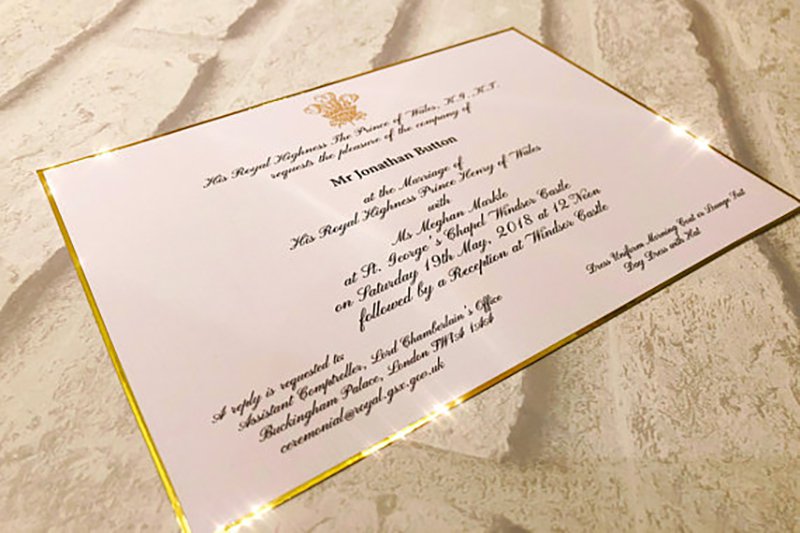 His Royal Highness The Prince of Wales, K.G., K.T.
requests the pleasure of the company of
Mr Jonathan Button
at the Marriage of
His Royal Highness Prince Henry of Wales
with
Ms Meghan Markle
at St. George's Chapel Windsor Castle
on Saturday 19th May, 2018 at 12 Noon
followed by a Reception at Windsor Castle
Dress Uniform Morning Coat or Lounge Suit
Day Dress with Hat
A reply is requested to:
Assistant Comptroller, Lord Chamberlain's Office
Buckingham Palace, London SW1A 1AA
ceremonial@royal.gsx.gov.uk